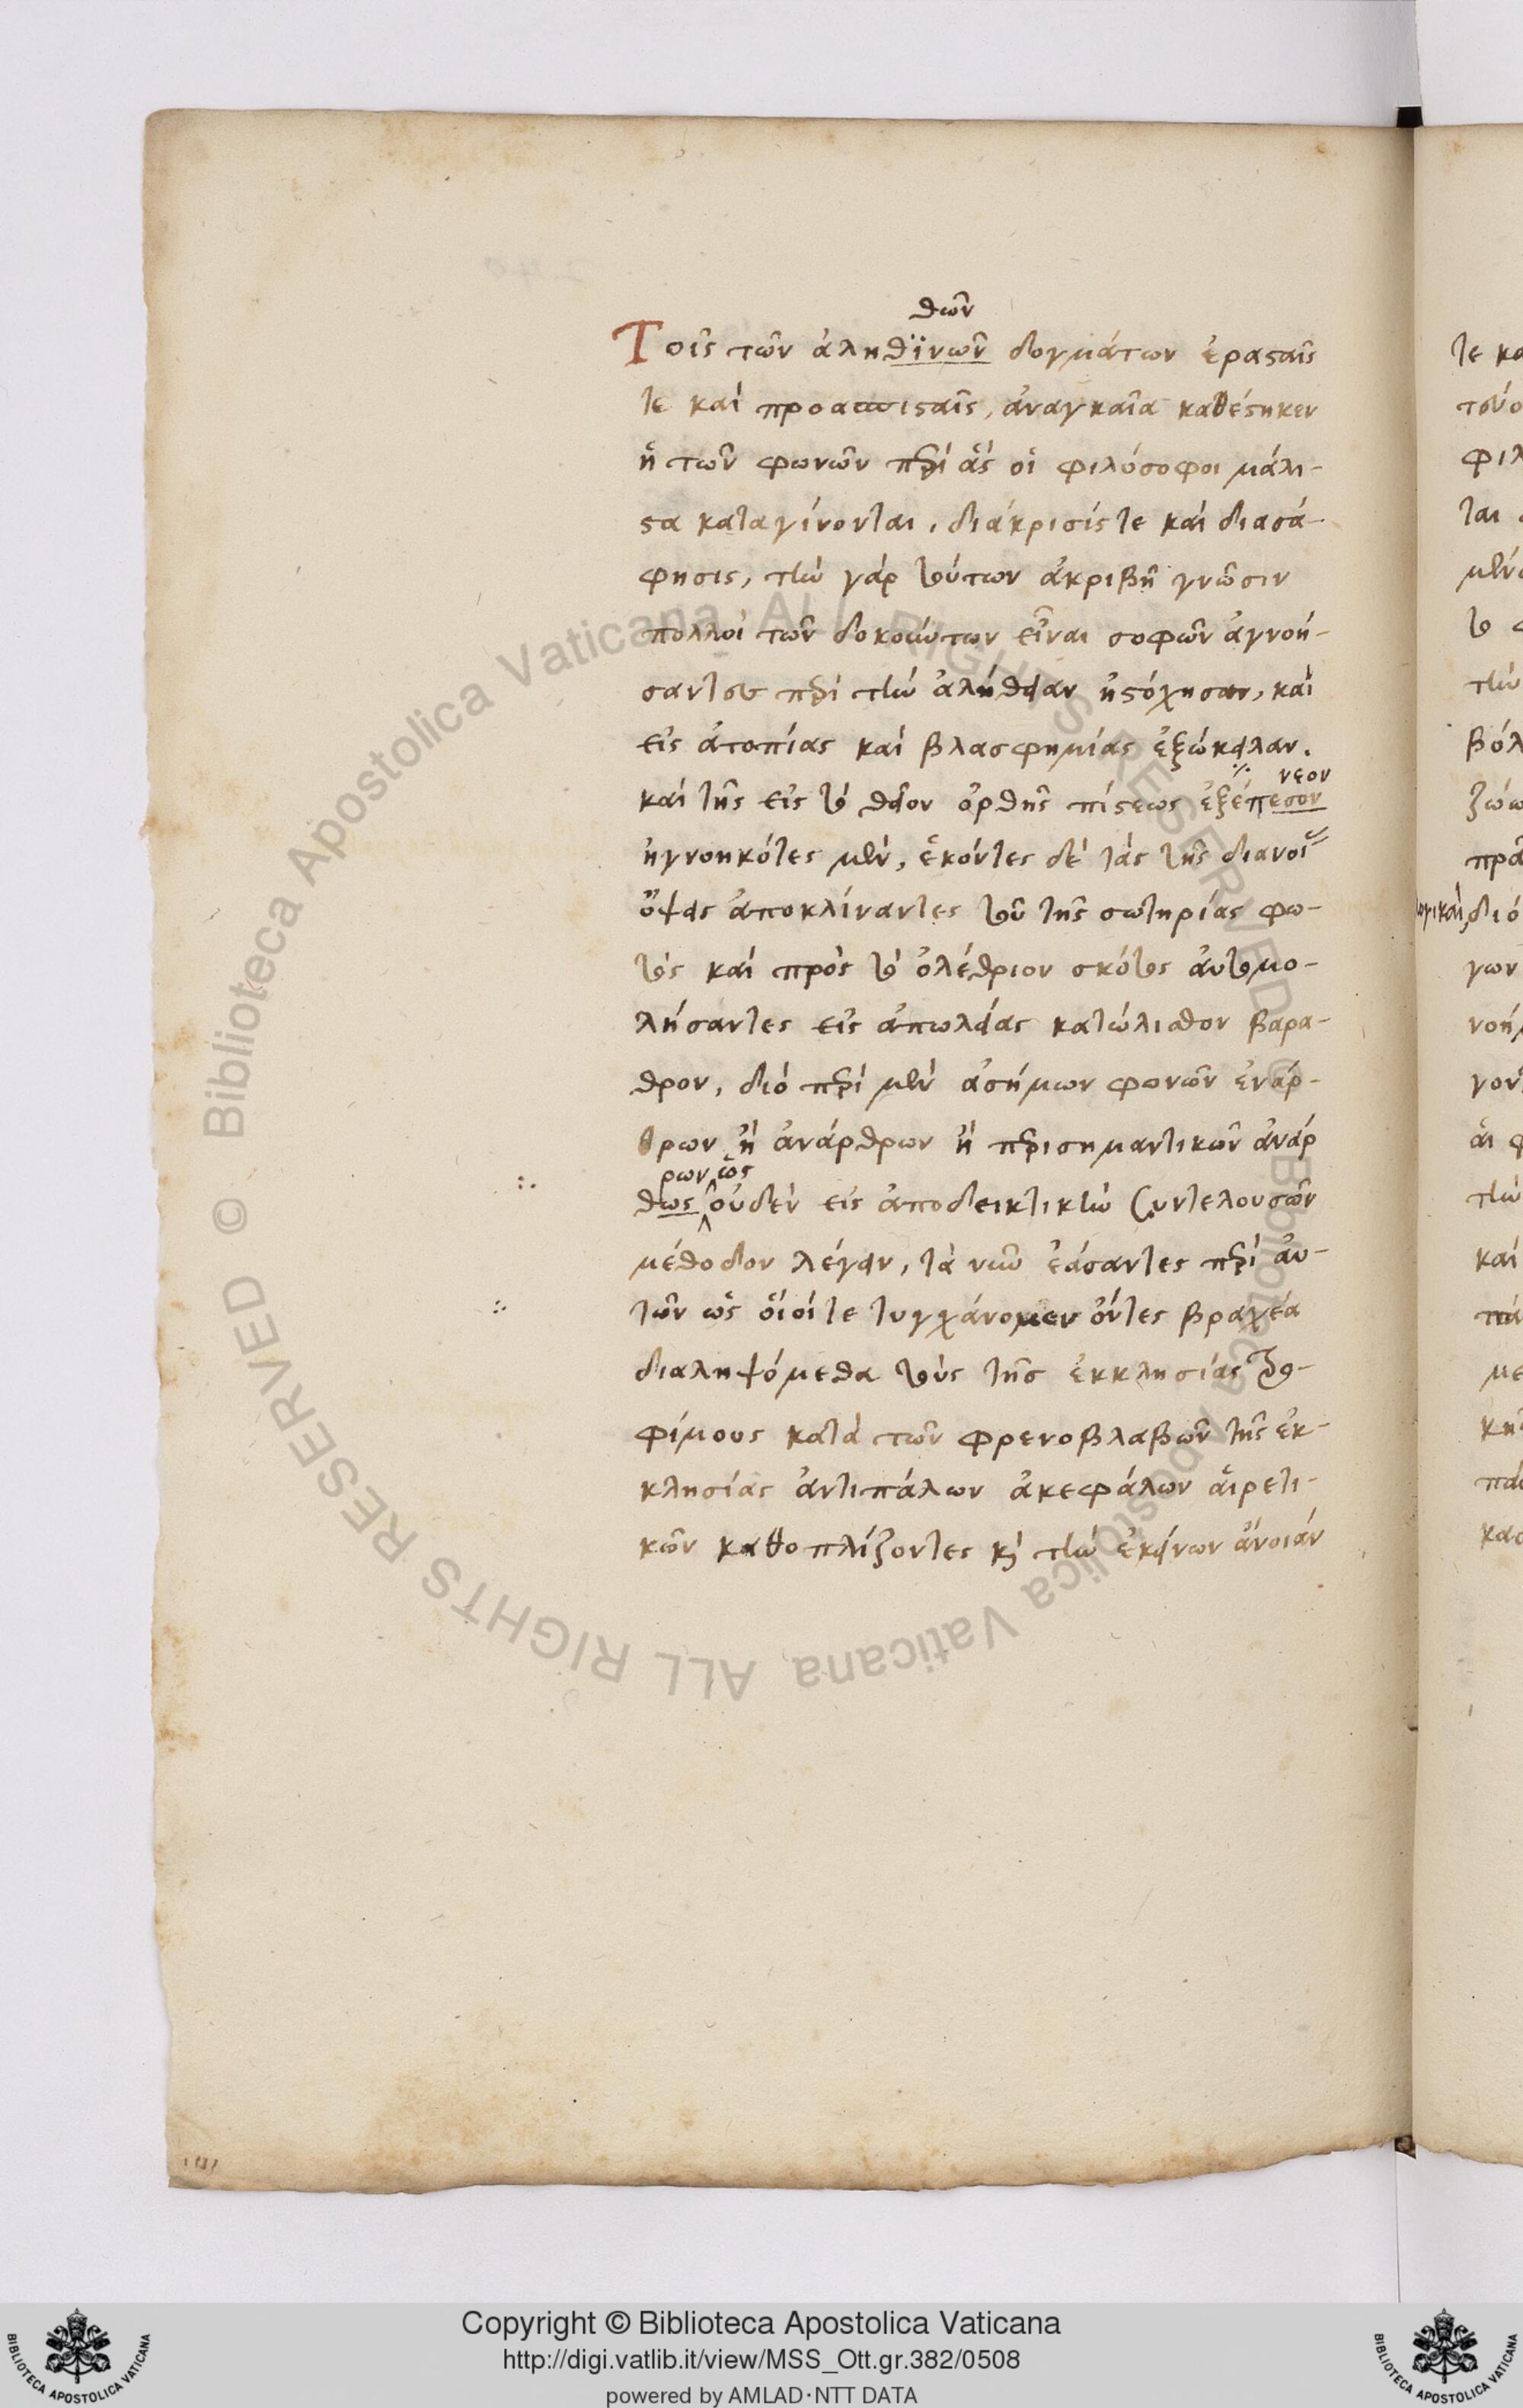 θῶν
Τοῖς τῶν ἀληθϊνῶν δογμάτων ἐρασταῖς
τε καὶ προασπισταῖς, ἀναγκαῖα καθέστηκεν
ἡ τῶν φωνῶν περὶ ἃς οἱ φιλόσοφοι μάλι-
στα καταγίνονται, διάκρισίς τε καὶ διασά-
φησις, τὴν γὰρ τούτων ἀκριβῆ γνῶσιν
πολλοὶ τῶν δοκούντων εἶναι σοφῶν ἀγνοή-
σαντες περὶ τὴν ἀλήθειαν ἠστόχησαν, καὶ
εἰς ἀτοπίας καὶ βλασφημίας ἐξώκειλαν.
νεον
καὶ τῆς εἰς τὸ θεῖον ὀρθῆς πίστεως ἐξέπεσον
ἠγνοηκότες μὲν, ἑκόντες δὲ τὰς τῆς διανοί
ὄψεις ἀποκλίναντες τοῦ τῆς σωτηρίας φω-
τὸς καὶ πρὸς τὸ ὀλέθριον σκότος αὐτομο-
λήσαντες εἰς ἀπωλείας κατώλισθον βαρα-
θρον, διὸ περὶ μὲν ἀσήμων φωνῶν ἐνάρ-
θρων ἢ ἀνάρθρων ἢ περὶ σημαντικῶν ἀνάρ
ρων, ὡς
θως οὐδὲν εἰς ἀποδεικτικὴν συντελουσῶν
μέθοδον λέγειν, τὰ νῦν ἐάσαντες περὶ αὐ-
τῶν ὡς οἷοί τε τυγχάνομεν ὄντες βραχέα
διαληψόμεθα τοὺς τῆς ἐκκλησίας τρο-
φίμους κατὰ τῶν φρενοβλαβῶν τῆς ἐκ-
κλησίας ἀντιπάλων ἀκεφάλων αἱρετι-
κῶν καθοπλίζοντες κὶ τὴν ἐκείνων ἄνοιάν
Copyright © Biblioteca Apostolica Vaticana
http://digi.vatlib.it/view/MSS_Ott.gr.382/0508
powered by AMLAD·NTT DATA